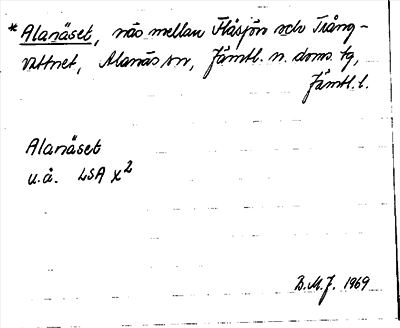 * Alanäset, näs mellan Flåsjön och Trång-
vattnet, Alanäs sn, Jämtl. n. doms. tg,
Jämtl. l.
Alanäset
u.å. LSA x2
B.M.J. 1969